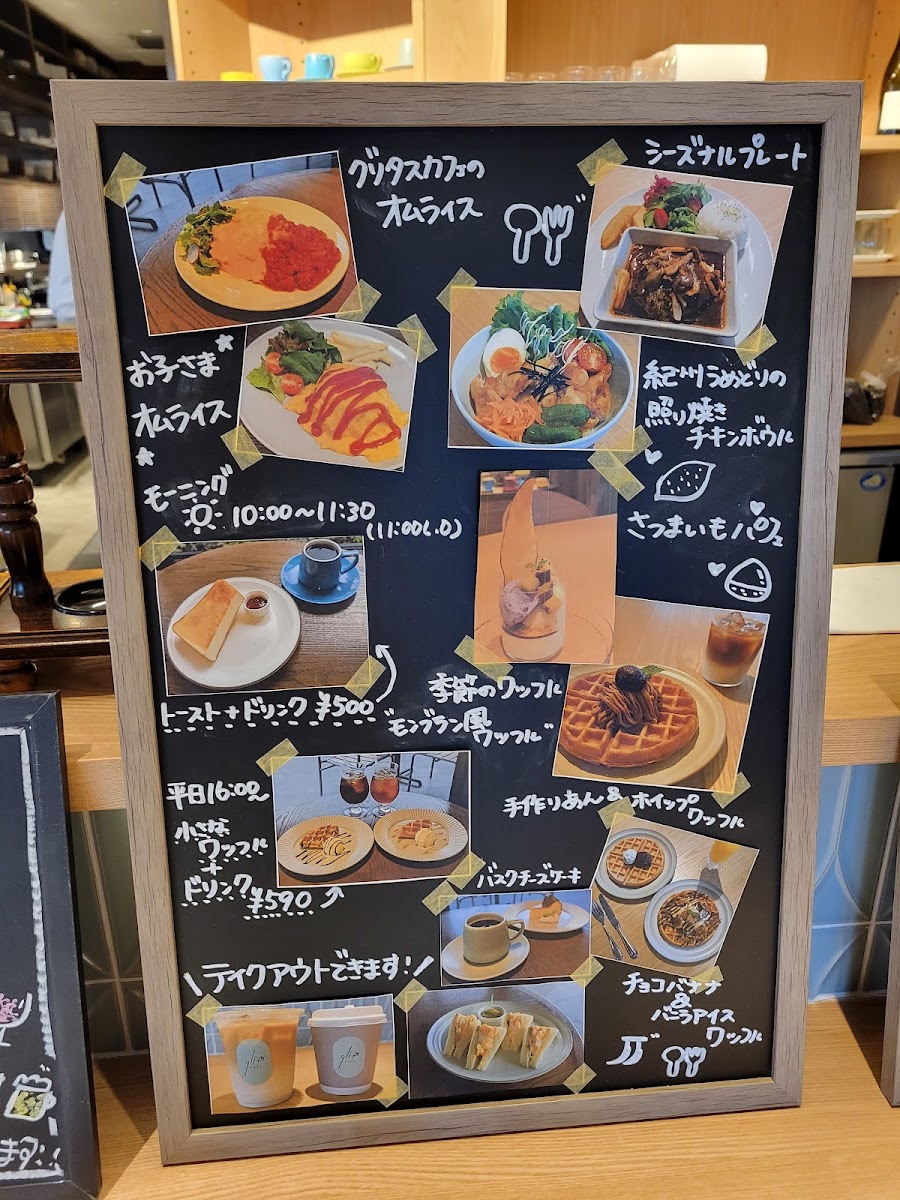 グリタスカフェの
オムライス
シーズナルプレート
お子さま
オムライス
紀州うめどりの
照り焼き
チキンボウル
モーニング
10:00〜11:30
(11:00L.O)
さつまいもパフェ
トースト+ドリンク ¥500
季節のワッフル
"モンブラン風
ワッフル"
平日16:00〜
小さな
ワッフル
+
ドリンク
¥590
手作りあん&ホイップ
ワッフル
バスクチーズケーキ
\テイクアウトできます!/
チョコバナナ
&
バニラアイス
ワッフル
ます!!